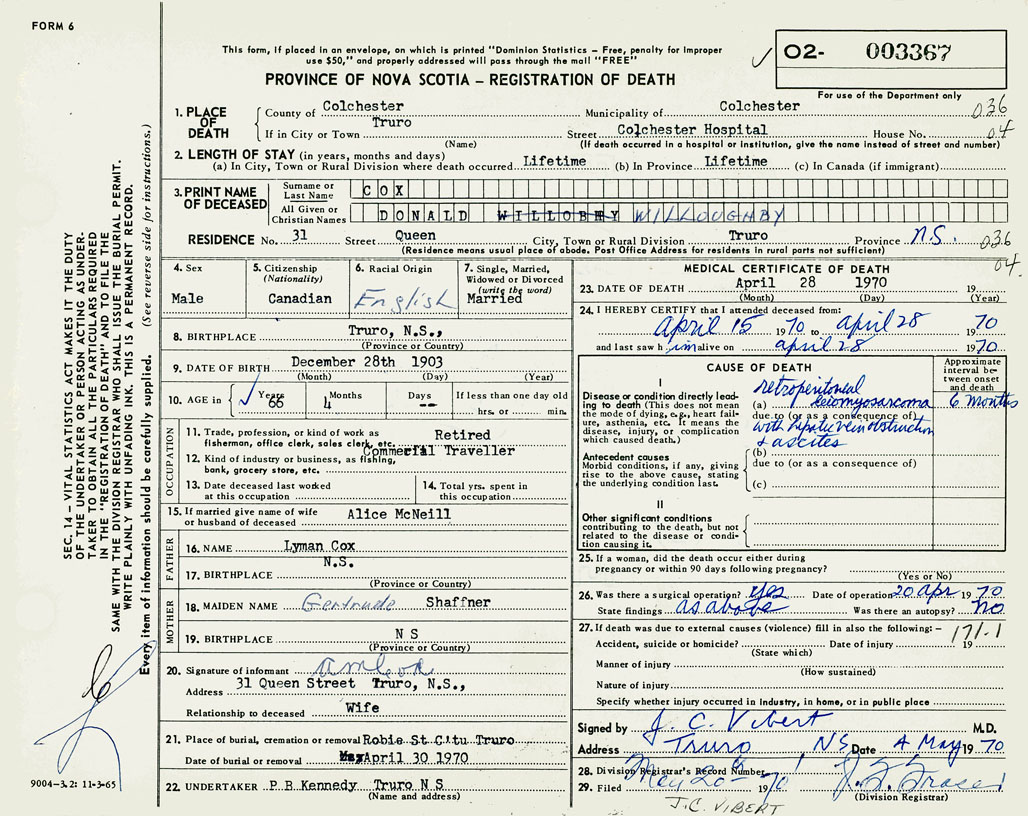 FORM 6
This form, if placed in an envelope, on which is printed "Dominion Statistics - Free, penalty for improper
use $50," and properly addressed will pass through the mail "FREE"
✓ 02- 003367
For use of the Department only
PROVINCE OF NOVA SCOTIA - REGISTRATION OF DEATH
1. PLACE OF DEATH
County of Colchester Municipality of Colchester 036
If in City or Town Truro Street Colchester Hospital House No. 04
(Name) (If death occurred in a hospital or institution, give the name instead of street and number)
2. LENGTH OF STAY (in years, months and days)
(a) In City, Town or Rural Division where death occurred Lifetime (b) In Province Lifetime (c) In Canada (if immigrant)
3. PRINT NAME OF DECEASED
Surname or Last Name COX
All Given or Christian Names DONALD WILLOBHY WILLOUGHBY
RESIDENCE No. 31 Street Queen City, Town or Rural Division Truro Province N.S. 036
(Residence means usual place of abode. Post Office Address for residents in rural parts not sufficient)
04.
4. Sex Male
5. Citizenship (Nationality) Canadian
6. Racial Origin English
7. Single, Married, Widowed or Divorced (write the word) Married
8. BIRTHPLACE Truro, N.S.,
(Province or Country)
9. DATE OF BIRTH December 28th 1903
(Month) (Day) (Year)
10. AGE in ✓ Years 66 Months 4 Days -- If less than one day old
hrs. or min.
OCCUPATION
11. Trade, profession, or kind of work as Retired
fisherman, office clerk, sales clerk, etc.
Commercial Traveller
12. Kind of industry or business, as fishing,
bank, grocery store, etc.
13. Date deceased last worked
at this occupation
14. Total yrs. spent in
this occupation
15. If married give name of wife
or husband of deceased Alice McNeill
FATHER
16. NAME Lyman Cox
17. BIRTHPLACE N.S.
(Province or Country)
MOTHER
18. MAIDEN NAME Gertrude Shaffner
19. BIRTHPLACE N S
(Province or Country)
20. Signature of informant
Address 31 Queen Street Truro, N.S.,
Relationship to deceased Wife
21. Place of burial, cremation or removal Robie St C tu Truro
Date of burial or removal May April 30 1970
22. UNDERTAKER P B Kennedy Truro N S
(Name and address)
MEDICAL CERTIFICATE OF DEATH
23. DATE OF DEATH April 28 1970 19
(Month) (Day) (Year)
24. I HEREBY CERTIFY that I attended deceased from:
April 15 1970 to April 28 1970
and last saw h im alive on april 28 1970
CAUSE OF DEATH
Approximate interval between onset and death
I
Disease or condition directly leading to death (This does not mean the mode of dying, e.g., heart failure, asthenia, etc. It means the disease, injury, or complication which caused death.)
retroperitoneal
(a) leiomyosarcoma 6 Months
due to (or as a consequence of)
with hepatic vein obstruction
+ ascites
Antecedent causes
Morbid conditions, if any, giving rise to the above cause, stating the underlying condition last.
(b)
due to (or as a consequence of)
(c)
II
Other significant conditions
contributing to the death, but not related to the disease or condition causing it.
25. If a woman, did the death occur either during
pregnancy or within 90 days following pregnancy?
(Yes or No)
26. Was there a surgical operation? yes Date of operation 20 Apr 1970
State findings as above Was there an autopsy? no
27. If death was due to external causes (violence) fill in also the following: - 171.1
Accident, suicide or homicide? Date of injury 19
(State which)
Manner of injury
(How sustained)
Nature of injury
Specify whether injury occurred in industry, in home, or in public place
Signed by J. C. Vibert M.D.
Address Truro NS Date 4 May 1970
28. Division Registrar's Record Number
29. Filed May 20th 1970
(Division Registrar)
J.C. VIBERT
SEC. 14 - VITAL STATISTICS ACT MAKES IT THE DUTY
OF THE UNDERTAKER OR PERSON ACTING AS UNDER-
TAKER TO OBTAIN ALL THE PARTICULARS REQUIRED
IN THE "REGISTRATION OF DEATH" AND TO FILE THE
SAME WITH THE DIVISION REGISTRAR WHO SHALL ISSUE THE BURIAL PERMIT.
WRITE PLAINLY WITH UNFADING INK. THIS IS A PERMANENT RECORD.
Every item of information should be carefully supplied. (See reverse side for instructions.)
9004-3.2: 11-3-65